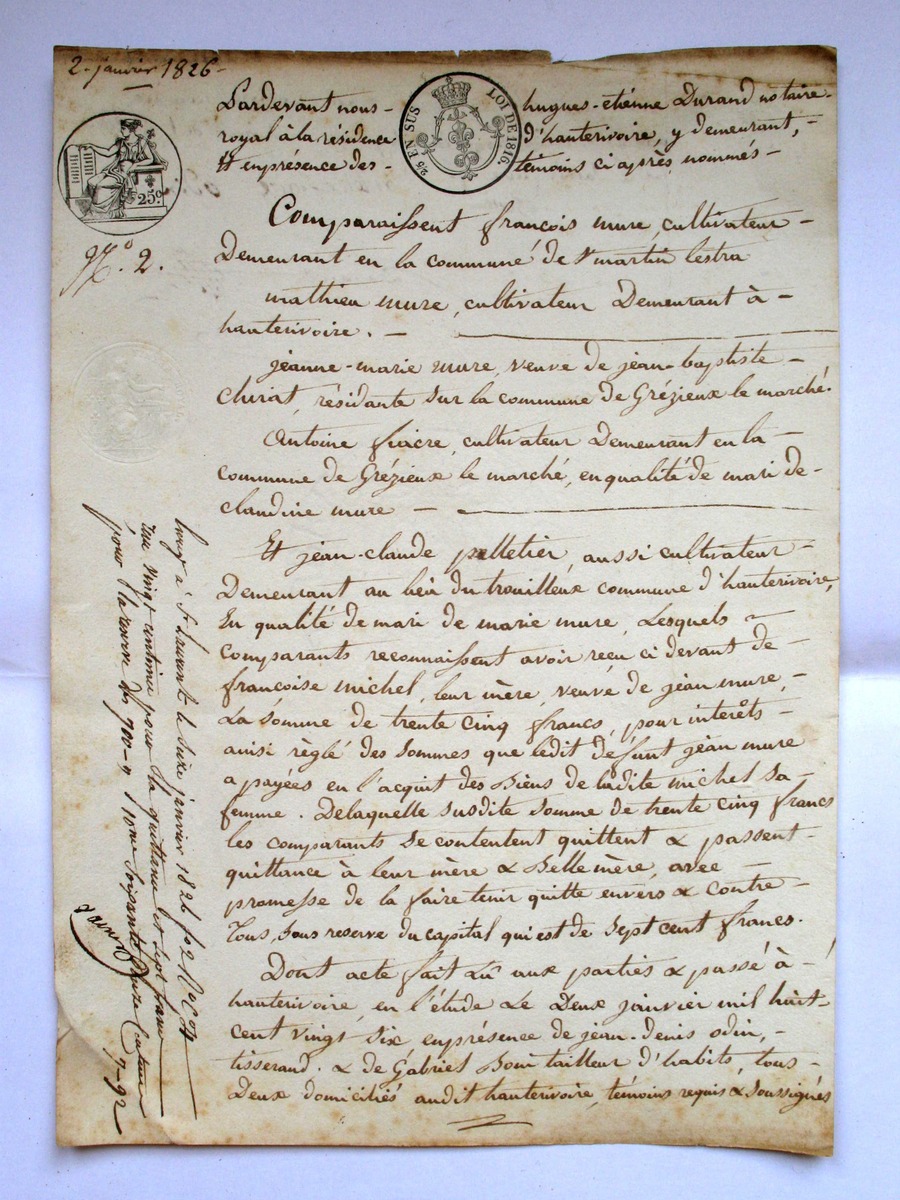 2. janvier 1826 -
Pardevant nous - hugues - etiénne Durand notaire -
royal à la résidence d'hauterivoire, y demeurant, -
Et en présence des - témoins ci après nommés -
25 EN SUS LOI DE 1816.
25c.
N.o 2.
Comparaissent françois mure, cultivateur -
Demeurant en la commune de St martin lestra
mathieu mure, cultivateur Demeurant à -
hauterivoire. -
jeanne - marie mure, veuve de jean - baptiste -
Chirat, résidante sur la commune de Grézieux le marché.
Antoine fiacre, cultivateur Demeurant en la -
commune de Grézieux le marché, en qualité de mari de -
claudine mure -
Et jean - claude pelletier, aussi cultivateur -
Demeurant au lieu du trouilleux commune d'hauterivoire,
En qualité de mari de marie mure, Lesquels -
comparants reconnaissent avoir reçu ci devant de -
françoise michel, leur mère, veuve de jean mure, -
La somme de trente cinq francs, pour interêts -
ainsi règlé des sommes que ledit défunt jean mure
a payées en l'acquit des Biens de ladite michel sa
femme. Delaquelle susdite somme de trente cinq francs
les comparants se contentent quittent & passent -
quittance à leur mère & Belle mère, avec -
promesse de la faire tenir quitte envers & contre -
Tous, sous reserve du capital qui est de sept cent francs.
Dont acte fait Lû aux parties & passé à -
hauterivoire, en l'étude Le Deux janvier mil huit
cent vingt six en présence de jean - denis odin, -
tisserand. & de Gabriel Bom tailleur d'habits, tous -
Deux domiciliés audit hauterivoire, témoins requis & soussignés
à St Laurent le seize janvier 1826 fo 2
vingt centimes pour la quittance et sept francs
pour la reserve des 700 - soixante onze centimes